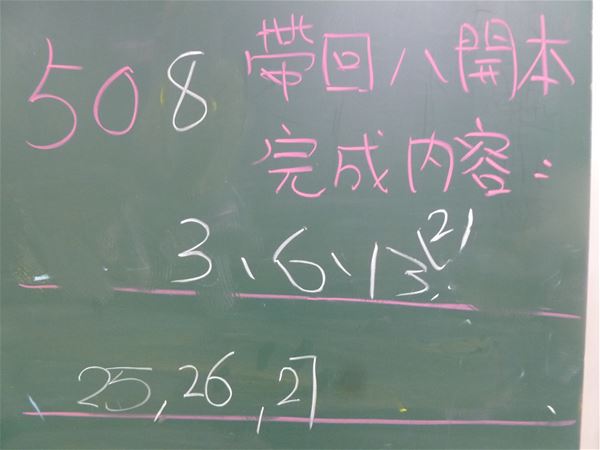 508 帶回八開本
完成內容:
3、6、13(2)
25,26,27